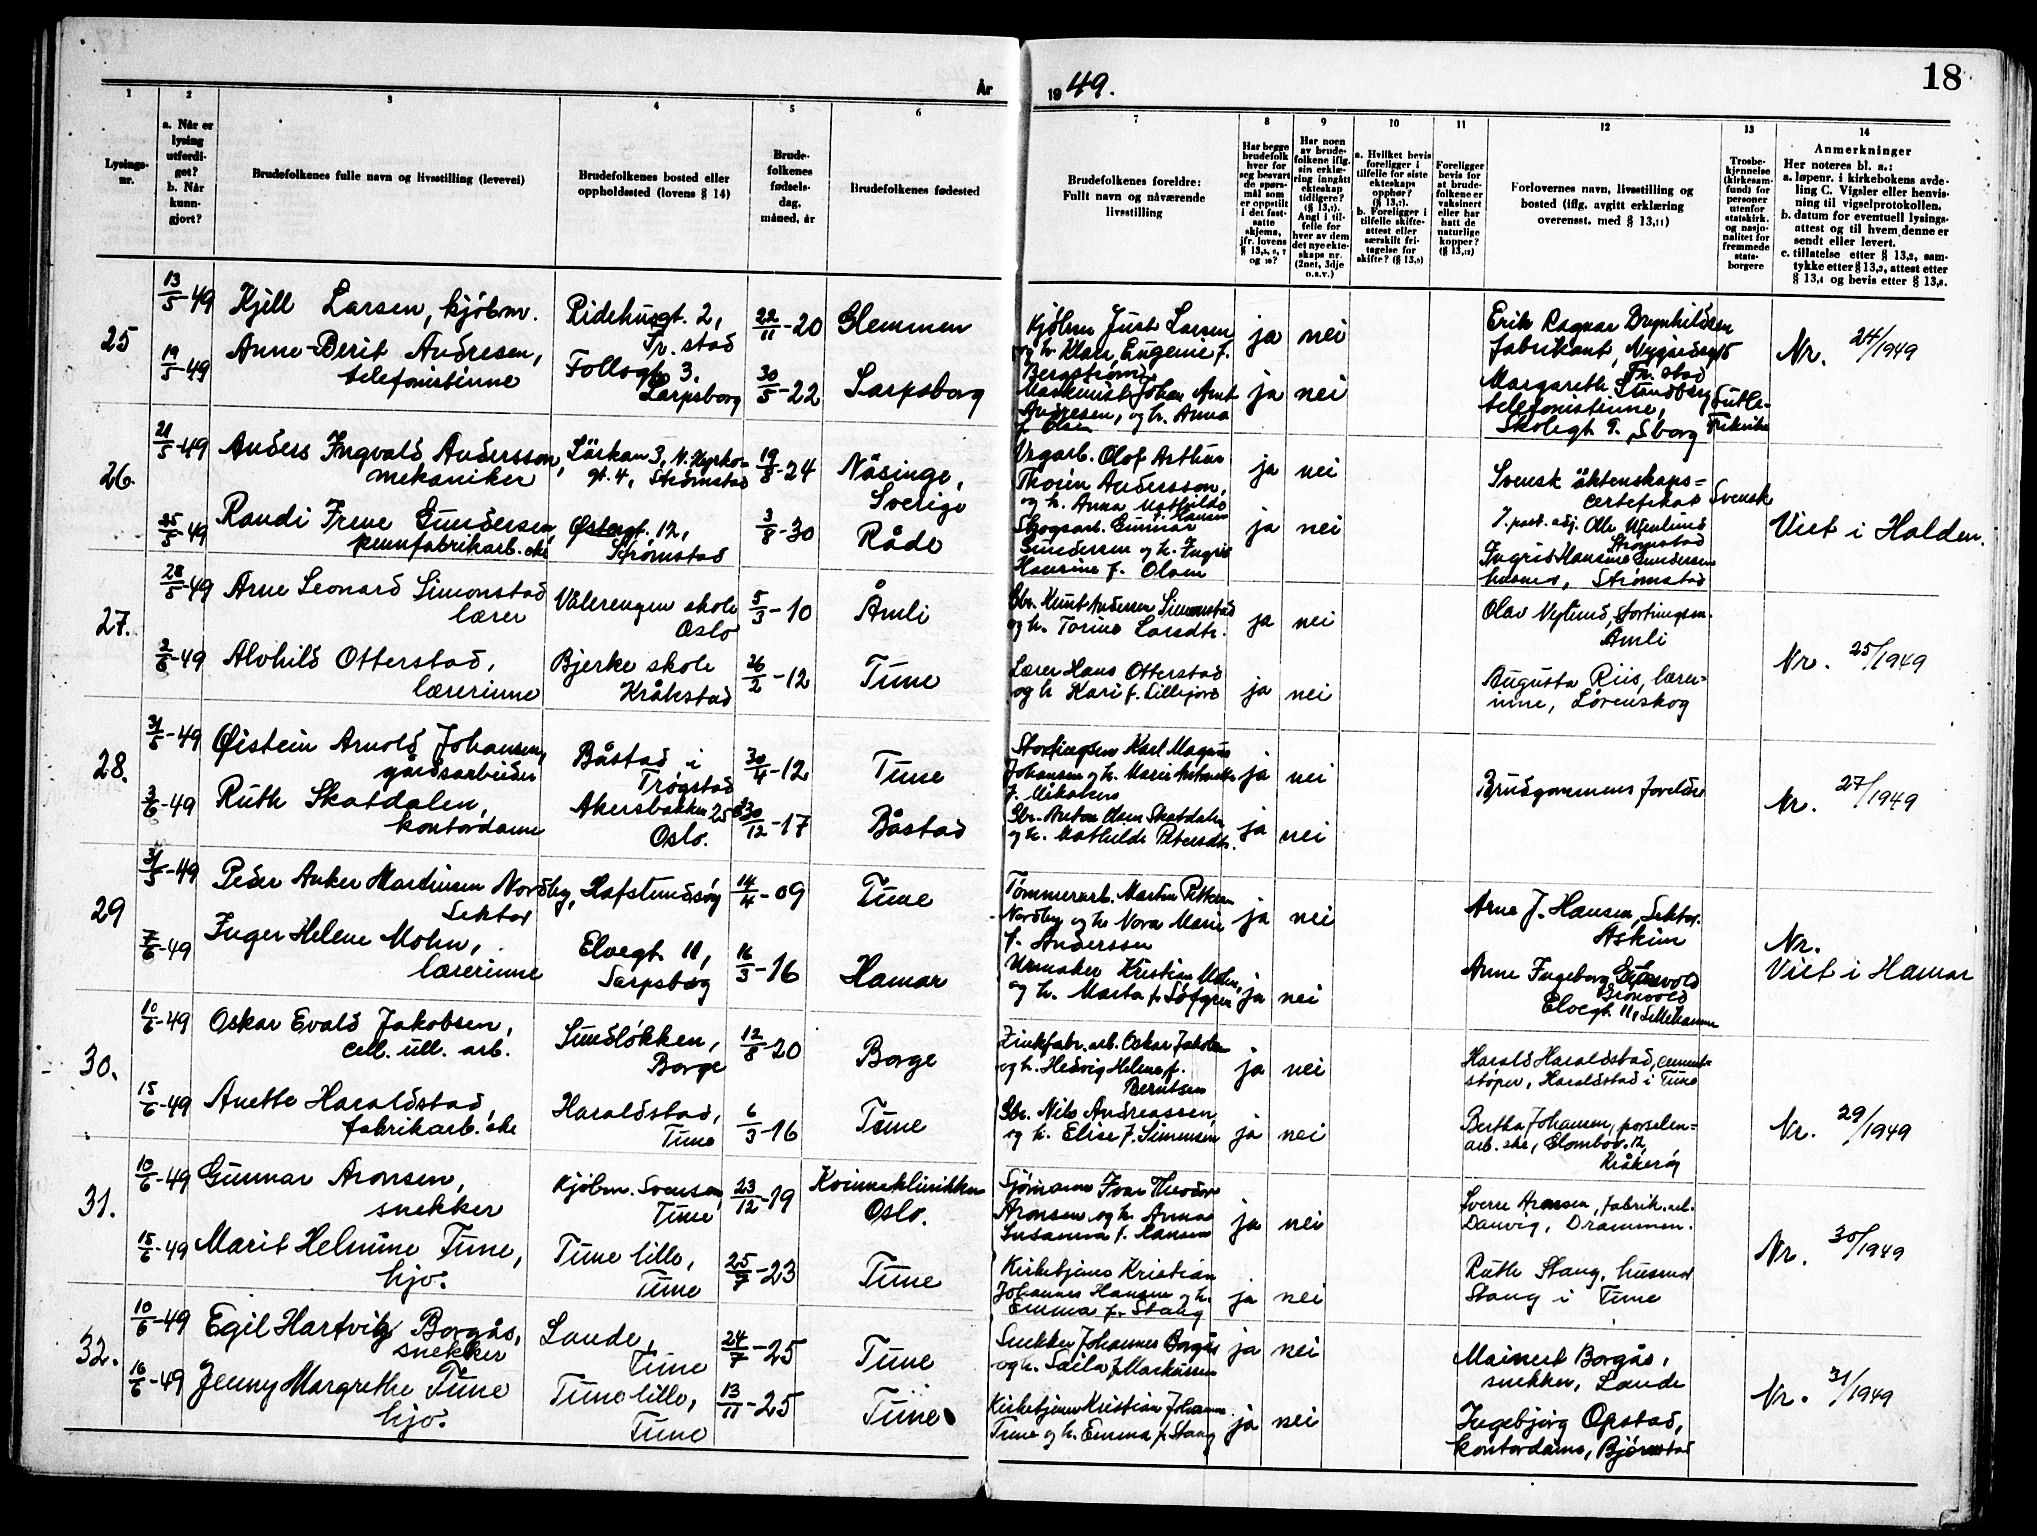 År 1949.
18
1
2
3
4
5
6
7
8
9
10
11
12
13
14
Lysings-
nr.
a. Når er
lysing
utferdi-
get?
b. Når
kunn-
gjort?
Brudefolkenes fulle navn og livsstilling (levevei)
Brudefolkenes bosted eller
oppholdssted (lovens § 14)
Brude-
folkenes
fødsels-
dag,
måned, år
Brudefolkenes fødested
Brudefolkenes foreldre:
Fullt navn og nåværende
livsstilling
Har begge
brudefolk
hver for
seg besvart
de spørs-
mål som
er oppstilt
i det fast-
satte
skjema,
jfr. lovens
Har noen
av brude-
folkene iflg.
sin erklæ-
ring inngått
ekteskap
tidligere?
Angi i til-
felle for
hver av dem
det nye ekte-
skaps nr.
(2net, 3dje
o.s.v.)
a. Hvilket bevis
foreligger i
tilfelle for siste
ekteskaps
opphør?
b. Foreligger i
tilfelle skifte-
attest eller
særskilt fri-
tagelse for
skifte?
Foreligger
bevis for
at brude-
folkene er
vaksinert
eller har
hatt de
naturlige
kopper?
Forlovernes navn, livsstilling og
bosted (iflg. avgitt erklæring
overensst. med § 13,11)
Trosbe-
kjennelse
(kirkesam-
fund) for
personer
utenfor
statskirk.
og nasjo-
nalitet for
fremmede
stats-
borgere
Anmerkninger
Her noteres bl. a.:
a. løpenr. i kirkebokens avde-
ling C. Vigsler eller henvis-
ning til vigselprotokollen.
b. datum for eventuell lysings-
attest og til hvem denne er
sendt eller levert.
c. tillatelse etter § 13,2, sam-
tykke etter § 13,3, attest etter
§ 13,4 og bevis etter § 13,8.
25
13/5-49
Kjell Larsen, kjøbm.
Ridehusgt. 2,
Fr. stad
22/11-20
Glemmen
Kjøbm Just Larsen
og h. Klara Eugenie f.
Bergstrøm
ja nei
Erik Ragnar Brynhildsen
fabrikant, Nygårdsg 15
Fr. stad
19/5-49
Anne-Berit Andresen,
telefonistinne
Follogt 3.
Sarpsborg
30/5-22
Sarpsborg
Maskinist Johan Arnt
Andresen, og h. Anna
f. Olsen
ja nei
Margareth Strindberg
telefonistinne,
Skolegt 9. Sborg
Nr. 24/1949
26.
21/5-49
Anders Ingvald Andersson,
mekaniker
Lärkan 3, N. Kyrko-
gt. 4, Strømstad
19/8-24
Näsinge,
Sverige
Vegarb. Olof Arthur
Thorin Andersson,
og h. Anna Mathilda
f. Hansen
ja nei
Svensk äktenskaps-
certefikat
Svensk
25/5-49
Randi Irene Gundersen
pennfabrikarb.ske
Østergt. 12,
Strømstad
3/8-30
Råde
Skogsarb. Gunnar
Gundersen og h. Ingrid
Hansine f. Olsen
ja nei
Strømstad
Ingrid Hansine Gundersen
husmor, Strømstad
Viet i Halden.
27.
28/5-49
Arne Leonard Simonstad
lærer
Vålerengen skole
Oslo
5/3-10
Åmli
Gbr. Knut Andersen Simonstad
og h. Torine Larsdtr.
ja nei
Olav Vegtund, stortingsm.
Åmli
2/6-49
Alvhild Otterstad,
lærerinne
Bjerke skole
Kråkstad
26/2-12
Tune
Lærer Hans Otterstad
og h Kari f. Lillejord
ja nei
Augusta Riis, lærer-
inne, Lørenskog
Nr. 25/1949
28.
31/5-49
Øistein Arnold Johansen,
gårdsarbeider
Båstad i
Trøgstad
30/4-12
Tune
Stortingsm Karl Magnus
Johansen og h. Marie Antonette
f. Mikalsen
ja nei
Brudgommens foreldre
3/6-49
Ruth Skatdalen,
kontordame
Akersbakken 25
Oslo.
30/12-17
Båstad
Gbr. Anton Olsen Skatdalen
og h. Mathilde Petersdtr.
ja nei
Nr. 27/1949
29
31/5-49
Peder Anker Martinsen Nordby,
Lektor
Hafslundsøy
14/4-09
Tune
Tømmerarb. Martin Pettersen
Nordby og h Nora Marie
f. Anderssen
ja nei
Arne J. Hansen, Lektor.
Askim
7/6-49
Inger Helene Mohn,
lærerinne
Elvegt 11,
Sarpsborg
16/3-16
Hamar
Urmaker Kristian Mohn,
og h. Marta f. Løfgren
ja nei
Anne Ingeborg
Grønvold
Elvegt. 11, Lillehammer
Nr.
Viet i Hamar
30.
10/6-49
Oskar Evald Jakobsen,
cell. ull. arb.
Sundløkken,
Borge
12/8-20
Borge
Zinkfabr.arb. Oskar Jakobsen
og h. Hedvig Helene f.
Berntsen
ja nei
Harald Haraldstad, cement-
støper, Haraldstad i Tune
15/6-49
Anette Haraldstad,
fabrikarb.ske
Haraldstad,
Tune
6/3-16
Tune
Gbr. Nils Andreassen
og h. Elise f. Simensen
ja nei
Bertha Johansen, porselen-
arb.ske, Glombov. 12,
Kråkerøy
Nr. 29/1949
31.
10/6-49
Gunnar Aronsen,
snekker
Kjøbm. Svensen
Tune
23/12-19
Kvinneklinikken
Oslo.
Sjømann Ivar Theodor
Aronsen og h. Anna
Susanna f. Hansen
ja nei
Sverre Aronsen, fabrik.arb.
Danvig, Drammen.
15/6-49
Marit Helmine Tune,
hjv.
Tune lille,
Tune
25/7-23
Tune
Kirketjener Kristian
Johannes Hansen og h.
Emma f. Stang
ja nei
Ruth Stang, husmor
Stang i Tune
Nr. 30/1949
32.
10/6-49
Egil Hartvig Borgås,
snekker
Lande,
Tune
24/7-25
Tune
Snekker Johannes Borgås
og h. Laila f. Markussen
ja nei
Mainert Borgås,
snekker, Lande
16/6-49
Jenny Margrethe Tune
hjv.
Tune lille,
Tune
13/11-25
Tune
Kirketjener Kristian Johannes
Tune og h. Emma f. Stang
ja nei
Ingebjørg Opstad,
kontordame, Bjørnstad
Nr. 31/1949